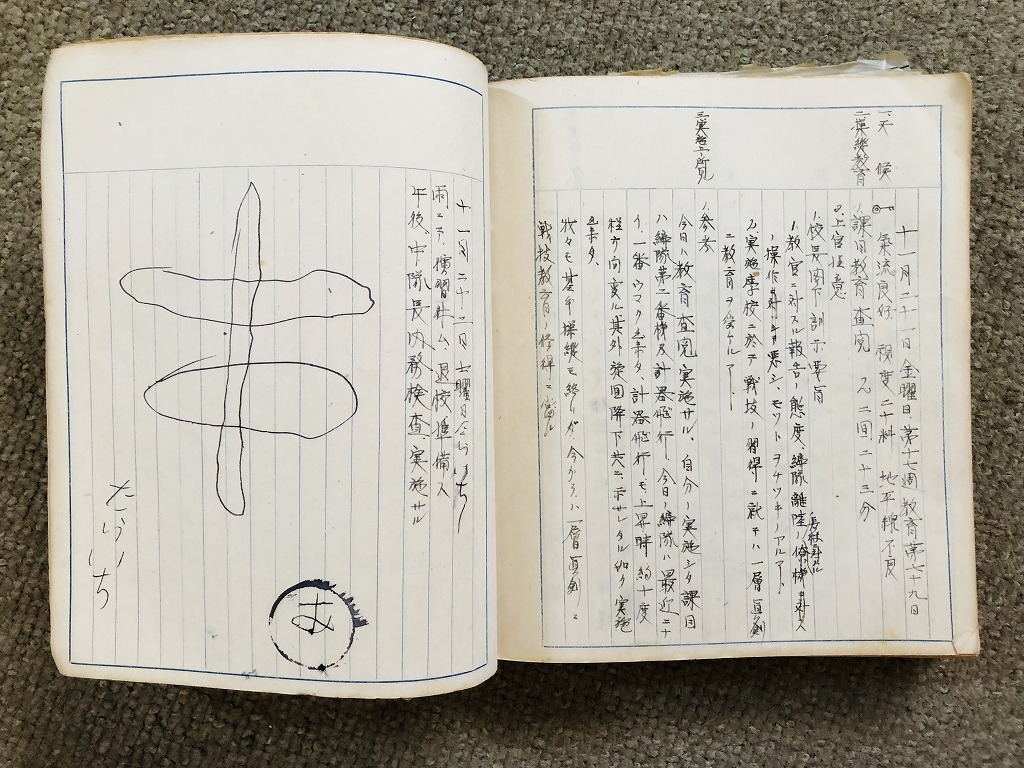 一、天候
二、操縦教育
三、実施上ノ所見
十一月二十一日 金曜日 第十七週教育第七十九日
気流良好 視度二十粁 地平線不良
1.課目教育査閲 及 二間二十三分
2.上官注意
1.校長閣下訓示要旨
1.教官ニ対スル報告ノ態度、編隊離陸ノ
操作 悪シ、モット ヲチツキノアル
2.実施学校ニ於テ戦技ノ習得ニ就テハ一層真剣
ニ教育ヲ受ケル
1.参考
今日ハ教育査閲実施サル、自分ノ実施シタ課目
ハ編隊第二番機及計器飛行、今日ノ編隊ハ最近ニナ
イ一番ウマク出来タ、計器飛行モ上昇時約十度
程方向変ル其外旋回降下共ニ示サレタル如ク実施
出来タ、
我々モ基本操縦モ終リ 今カラハ一層真剣ニ
戦技教育ノ修得ニ
十一月二十二日 土曜日
雨ニテ 演習休ム、退校準備
午後、中隊長内務検査、実施サル
たいいち
お